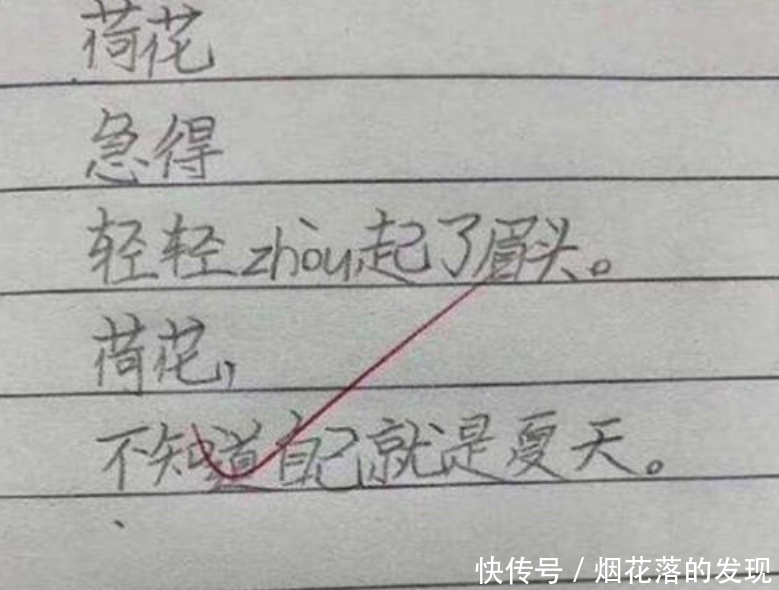 荷花
急得
轻轻zhòu起了眉头。
荷花，
不知道自己就是夏天。
快传号/烟花落的发现